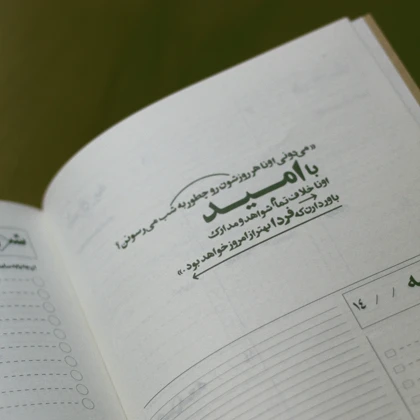 «می‌دونی اونا هر روزشون رو چطور به شب می‌رسونن؟
با امید
اونا خلاف تمام شواهد و مدارک
باور دارن که فردا بهتر از امروز خواهد بود.»
/ / ١٤